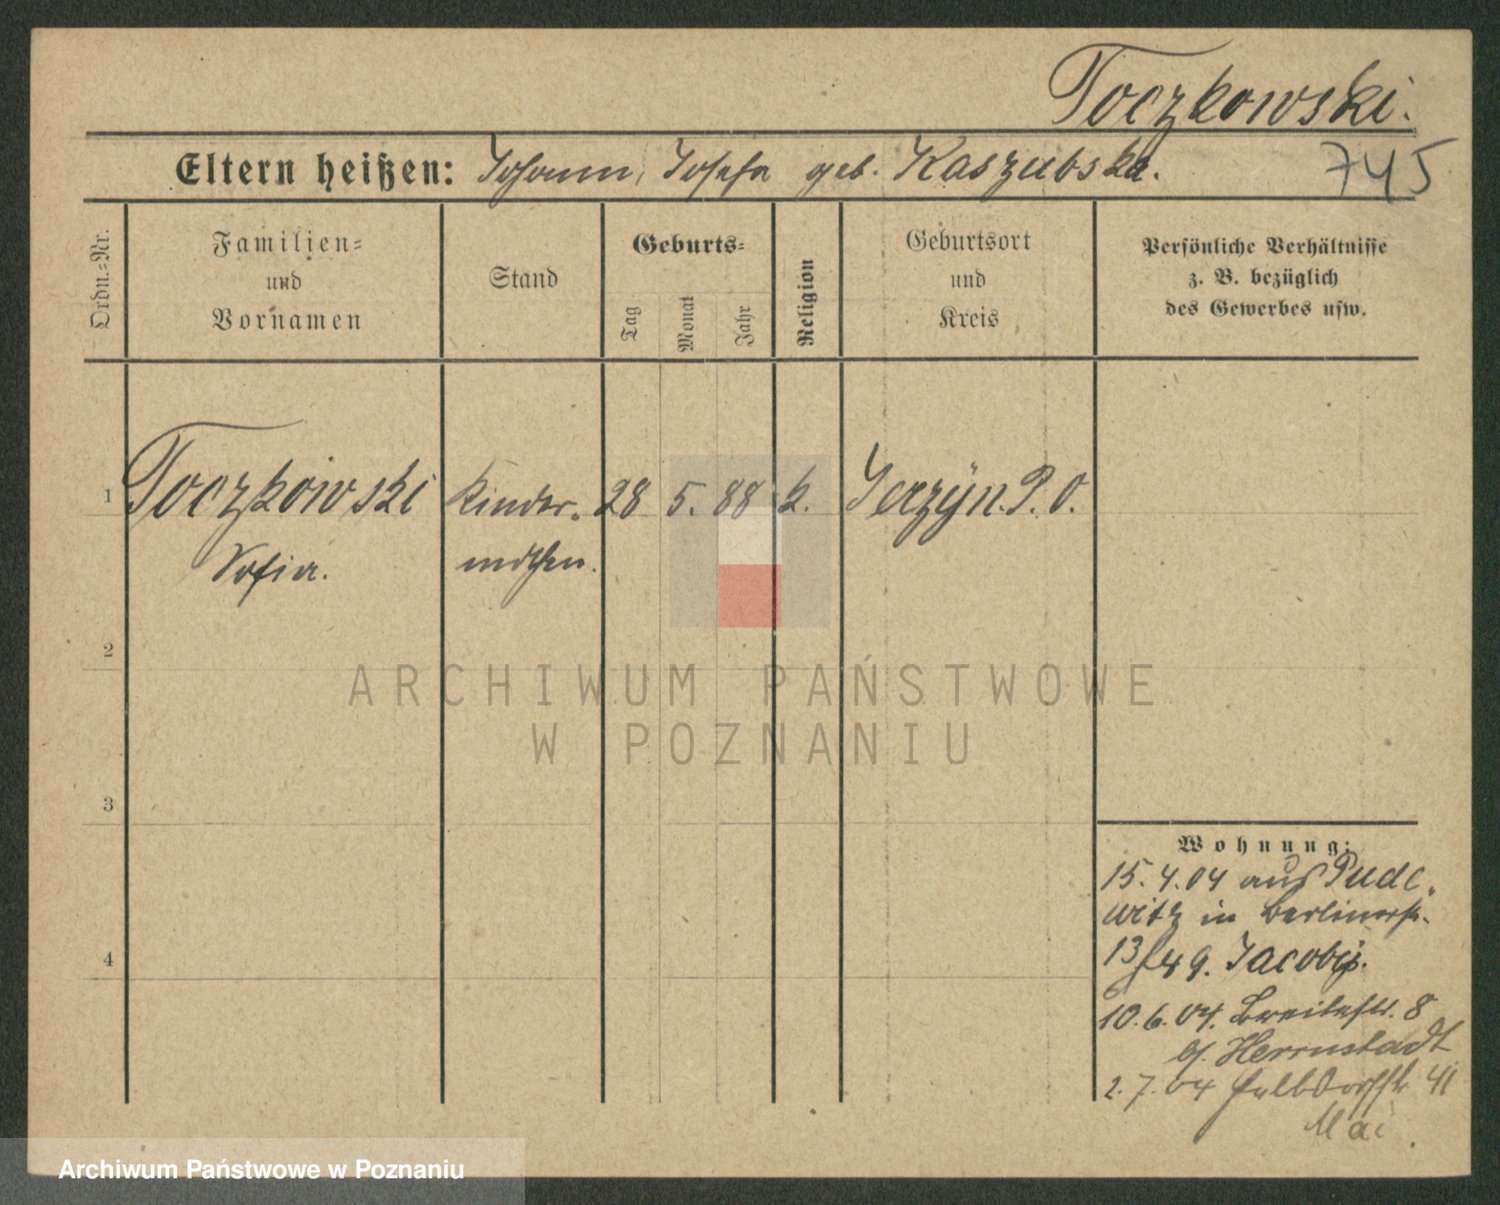 Toczkowski.
Eltern heißen: Johann, Josefa geb. Kaszubska. 745
Ordn.=Nr.
Familien=
und
Vornamen
Stand
Geburts=
Tag
Monat
Jahr
Religion
Geburtsort
und
Kreis
Persönliche Verhältnisse
z. B. bezüglich
des Gewerbes usw.
1 Toczkowski Kinder- 28 5. 88 k. Jerzyn. P. O.
Sofia. mdchen.
2
ARCHIWUM PAŃSTWOWE
W POZNANIU
3
4
Wohnung:
15.4.04 aus Pude-
witz in Berlinerstr.
13 Jacoby.
10.6.04. Breitestr. 8
Herrnstadt
2.7.04 41
Mai
Archiwum Państwowe w Poznaniu